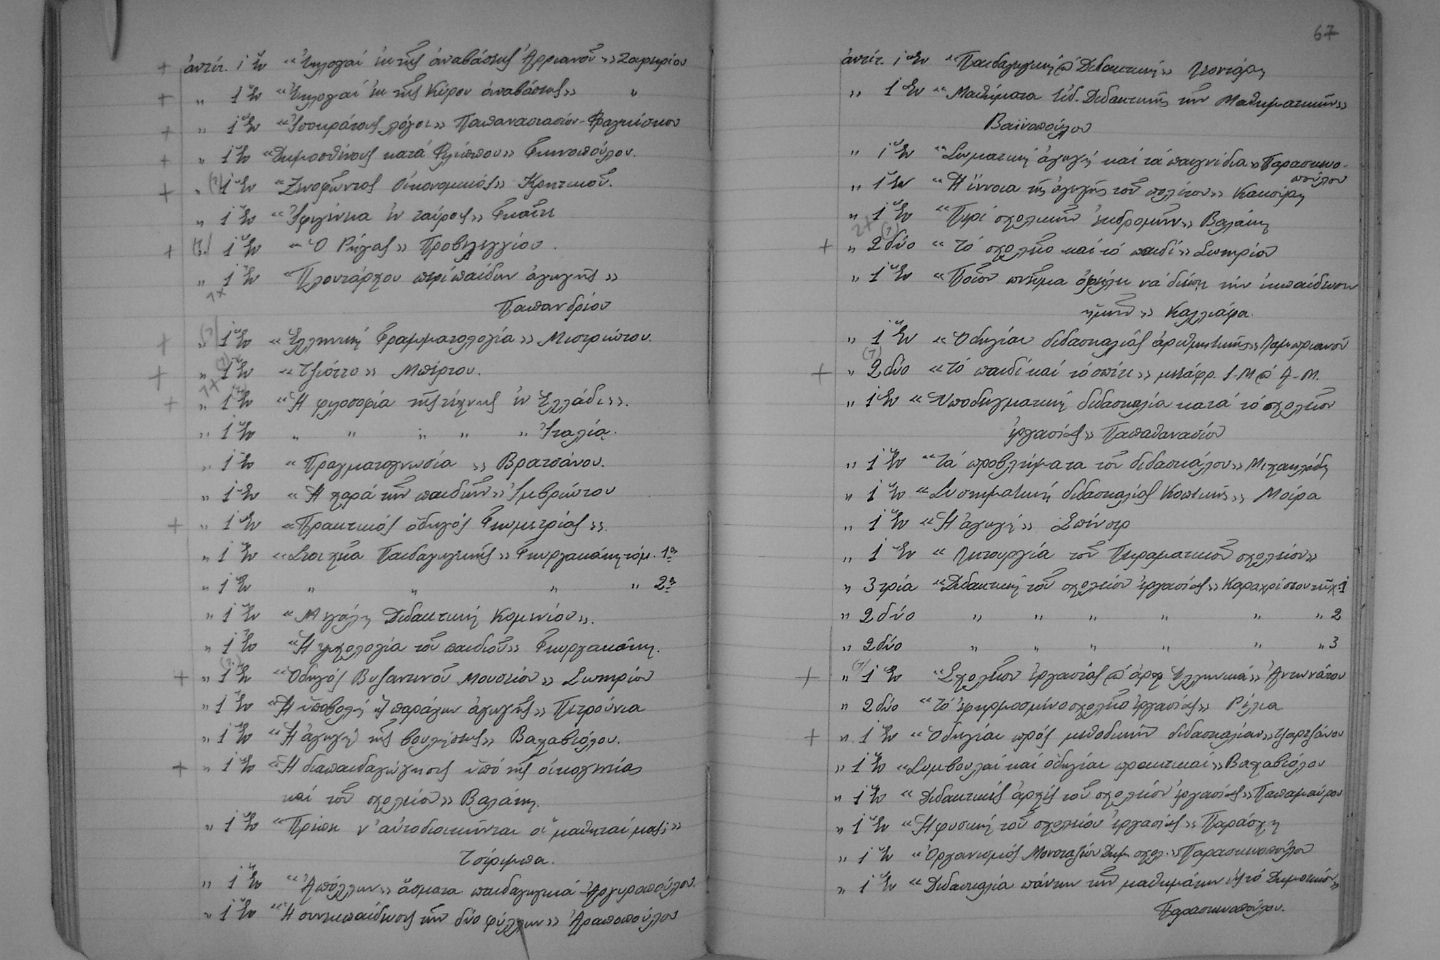 ἀντίτ. 1 ἕν "Ἐκλογαί ἐκ τῆς ἀναβάσεως Ἀρριανοῦ" Ζαφειρίου
" 1 ἕν "Ἐκλογαί ἐκ τῆς Κύρου ἀναβάσεως" "
" 1 ἕν "Ἰσοκράτους λόγοι" Παπαναστασίου - Φραγκίσκου
" 1 ἕν "Δημοσθένους κατά Φιλίππου" Γκινοπούλου.
" (?) 1 ἕν "Ξενοφῶντος Οἰκονομικός" Κρητικοῦ.
" 1 ἕν "Ἰφιγένεια ἐν ταύροις" Γκαῖτε
(?) 1 ἕν "Ὁ Ρήγας" Προβελεγγίου.
" 1 ἕν "Πλουτάρχου περί παίδων ἀγωγῆς"
Παπανδρέου
" 1 ἕν "Ἑλληνική Γραμματολογία" Μιστριώτου.
" 1 ἕν "Τζιόττο" Μπέρτου.
" 1 ἕν "Ἡ φιλοσοφία τῆς τέχνης ἐν Ἑλλάδι".
" 1 ἕν " " " " " Ἰταλίᾳ.
" 1 ἕν "Πραγματογνωσία" Βρατσάνου.
" 1 ἕν "Ἡ χαρά τῶν παιδιῶν" Ἰμβριώτου
" 1 ἕν "Πρακτικός ὁδηγός Γεωμετρίας".
" 1 ἕν "Στοιχεῖα Παιδαγωγικῆς" Γεωργακάκη τόμ. 1ος
" 1 ἕν " " " " 2ος
" 1 ἕν "Μεγάλη Διδακτική Κομενίου".
" 1 ἕν "Ἡ ψυχολογία τοῦ παιδιοῦ" Γεωργακάκη.
" (?) 1 ἕν "Ὁδηγός Βυζαντινοῦ Μουσείου" Σωτηρίου
" 1 ἕν "Ἡ ὑποβολή ὡς παράγων ἀγωγῆς" Πετρούνια
" 1 ἕν "Ἡ ἀγωγή τῆς βουλήσεως" Βαχαβιόλου.
" 1 ἕν "Ἡ διαπαιδαγώγησις ὑπό τῆς οἰκογενείας
καί τοῦ σχολείου" Βαλάκη.
" 1 ἕν "Πρέπει ν' αὐτοδιοικοῦνται οἱ μαθηταί μας;"
Τσίριμπα.
" 1 ἕν "Ἀπόλλων" ᾄσματα παιδαγωγικά Ἀργυροπούλου.
" 1 ἕν "Ἡ συνεκπαίδευσις τῶν δύο φύλων" Ἀραποπούλου
67
ἀντίτ. 1 ἕν "Παιδαγωγική & Διδακτική" Λεοντάρη
" 1 ἕν "Μαθήματα Εἰδ. Διδακτικῆς τῶν Μαθηματικῶν"
Βαϊνοπούλου
" 1 ἕν "Σωματική ἀγωγή καί τά παιγνίδια" Παρασκευο-
πούλου
" 1 ἕν "Ἡ ἔννοια τῆς ἀγωγῆς τοῦ πολίτου" Κακούρη
" 1 ἕν "Περί σχολικῶν ἐκδρομῶν" Βαλάκη
" 2 δύο "Τό σχολεῖο καί τό παιδί" Σωτηρίου
" 1 ἕν "Ποῖον πνεῦμα ὀφείλει νά διέπῃ τήν ἐκπαίδευσιν
ἡμῶν" Καλλιάφα.
" 1 ἕν "Ὁδηγίαι διδασκαλίας ἀριθμητικῆς" Λαμπριανοῦ
(?)
" 2 δύο "Τό παιδί καί τό σπίτι" μετάφρ. Ι-Μ & Α-Μ.
" 1 ἕν "Ὑποδειγματική διδασκαλία κατά τό σχολεῖον
ἐργασίας" Παπαθανασίου
" 1 ἕν "Τά προβλήματα τοῦ διδασκάλου" Μιχαηλίδη
" 1 ἕν "Συστηματική διδασκαλίας Κοπτικῆς" Μοίρα
" 1 ἕν "Ἡ ἀγωγή" Σπένσερ
" 1 ἕν "Λειτουργία τοῦ Πειραματικοῦ σχολείου"
" 3 τρία "Διδακτική τοῦ σχολείου ἐργασίας" Καραχρίστου τεῦχ. 1
" 2 δύο " " " " " " 2
" 2 δύο " " " " " " 3
" (?) 1 ἕν "Σχολεῖον ἐργασίας & ἀρχ. Ἑλληνικά" Ἀντωνάτου
" 2 δύο "Τό ἐφηρμοσμένο σχολεῖο ἐργασίας" Ρέλια
" 1 ἕν "Ὁδηγίαι πρός μεθοδικήν διδασκαλίαν" Τζαρτζάνου
" 1 ἕν "Συμβουλαί καί ὁδηγίαι πρακτικαί" Βαχαβιόλου
" 1 ἕν "Διδακτικές ἀρχές τοῦ σχολείου ἐργασίας" Παπαμαύρου
" 1 ἕν "Ἡ φυσική τοῦ σχολείου ἐργασίας" Παράσχη
" 1 ἕν "Ὀργανισμός Μονοταξίου Δημ. σχολ." Παρασκευοπούλου
" 1 ἕν "Διδασκαλία πάντων τῶν μαθημάτων εἰς τό Δημοτικόν"
Παρασκευοπούλου.